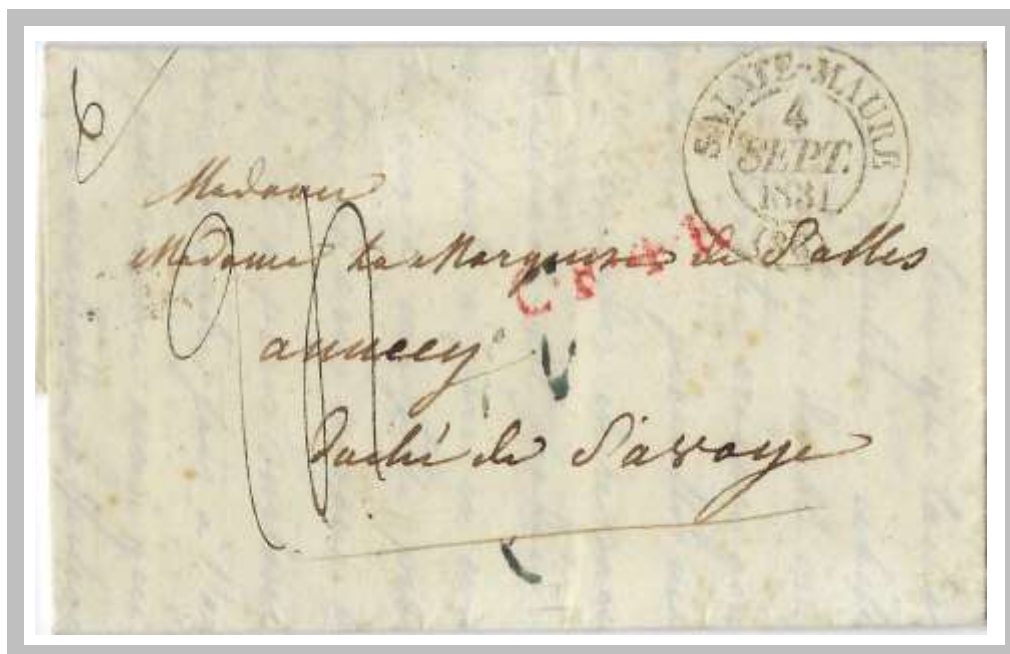 6
SAINTE-MAURE
4
SEPT.
1831
Madame
Madame La Marquise de Salles
annecy
Duché de Savoye